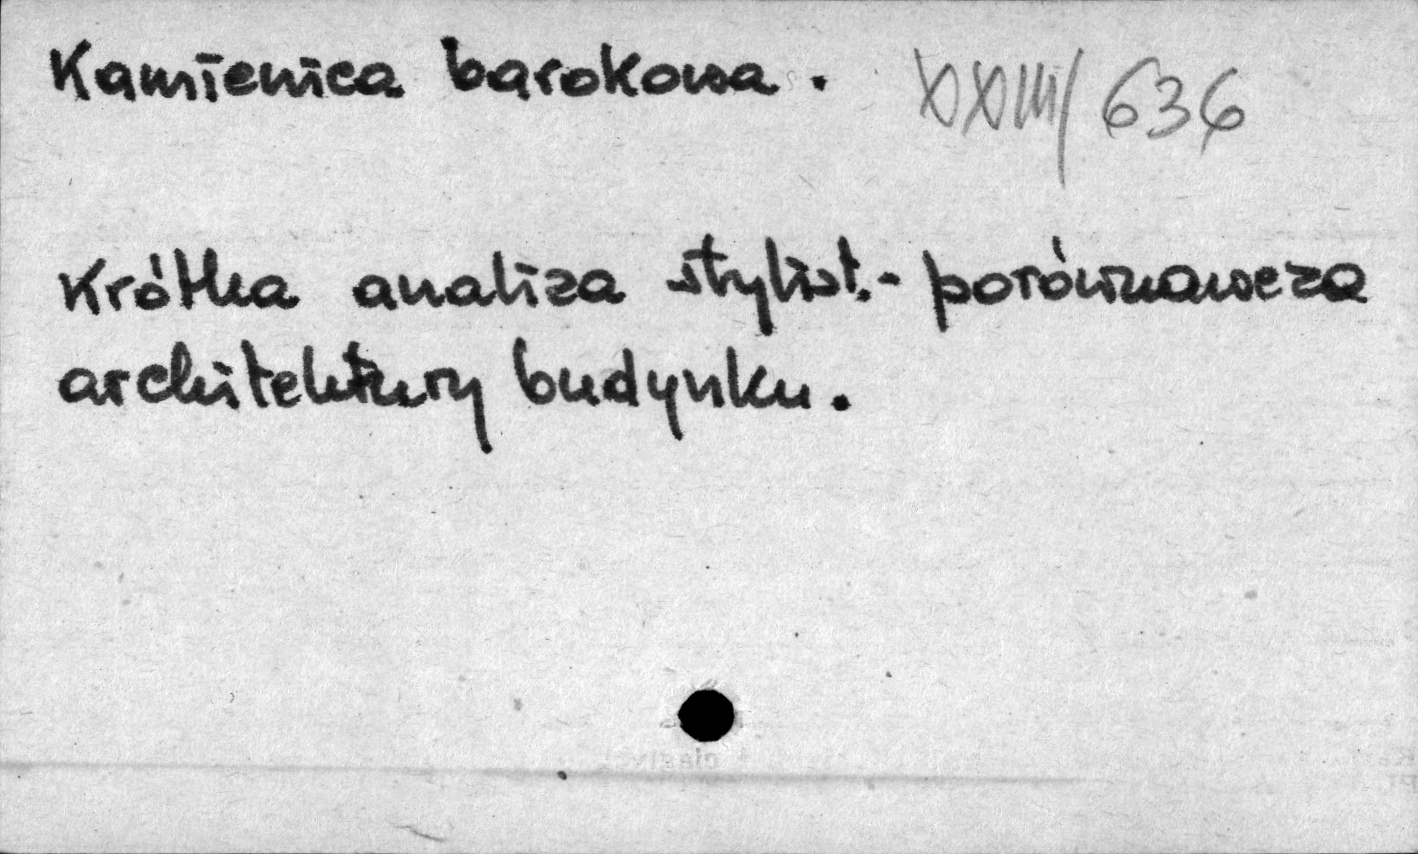 Kamienica barokowa. XXIII/636
Krótka analiza stylist.- porównawcza
architektury budynku.